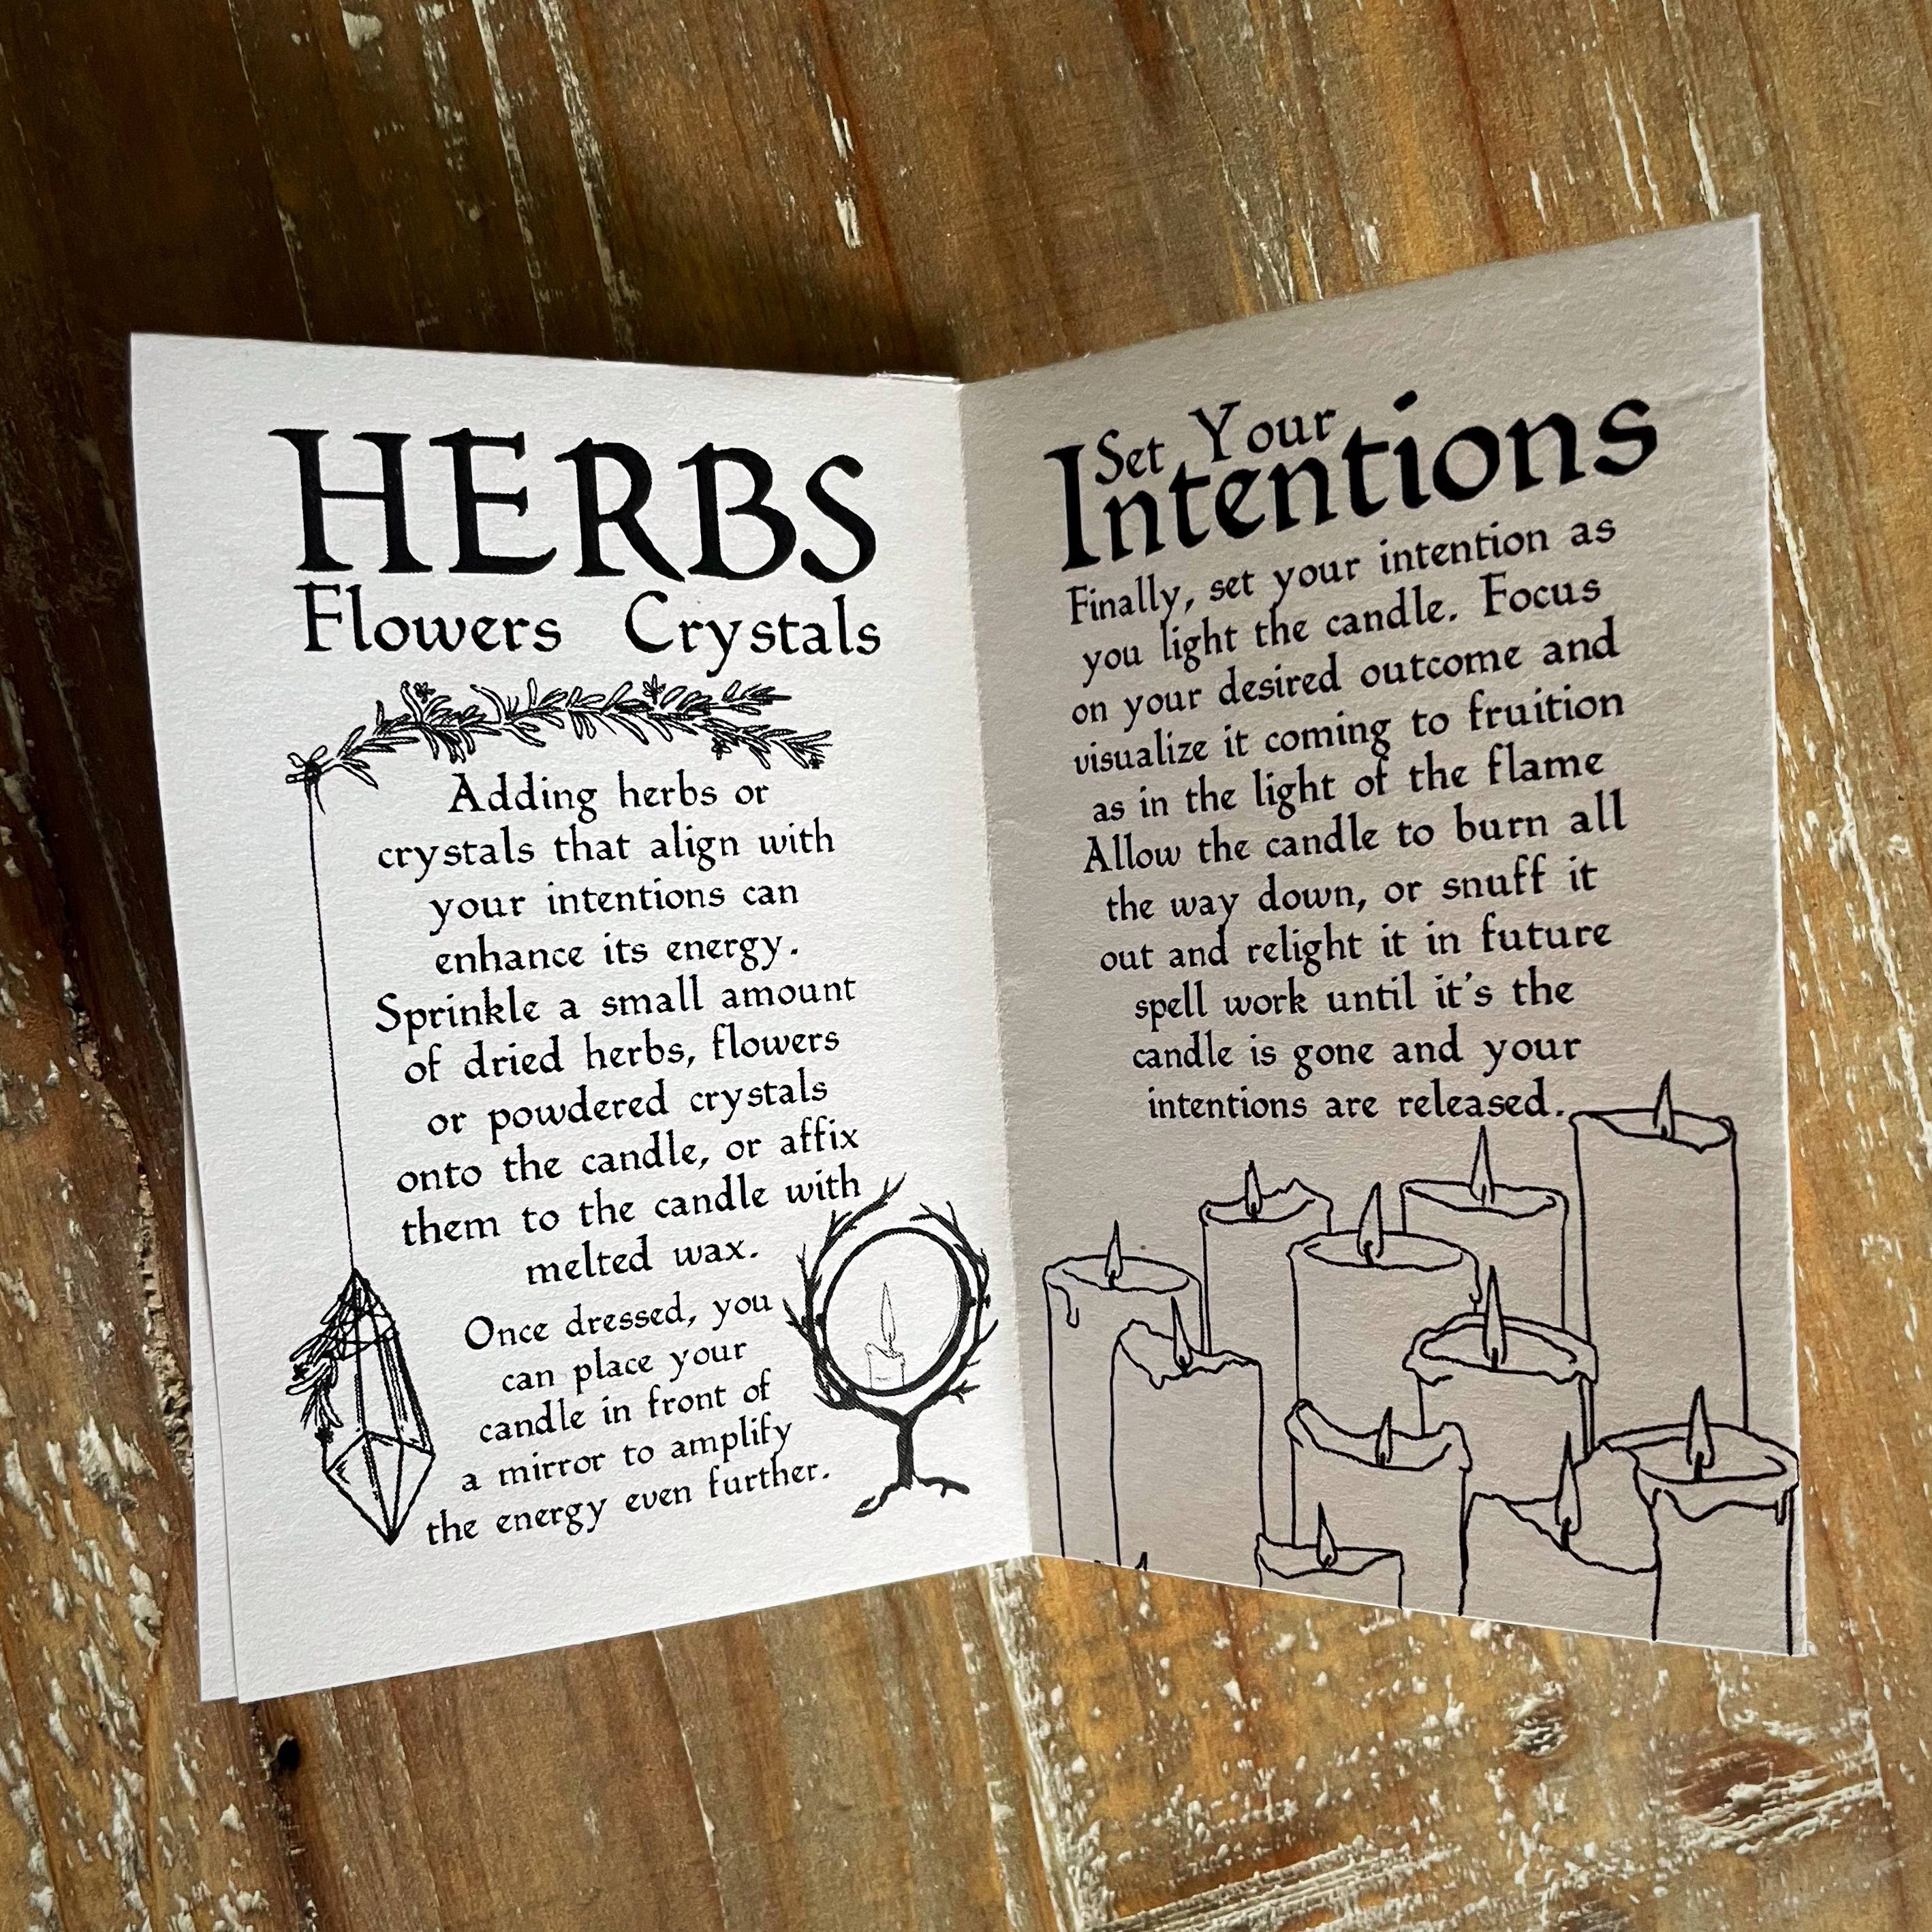 HERBS
Flowers Crystals
Adding herbs or
crystals that align with
your intentions can
enhance its energy.
Sprinkle a small amount
of dried herbs, flowers
or powdered crystals
onto the candle, or affix
them to the candle with
melted wax.
Once dressed, you
can place your
candle in front of
a mirror to amplify
the energy even further.
Set Your
Intentions
Finally, set your intention as
you light the candle. Focus
on your desired outcome and
visualize it coming to fruition
as in the light of the flame
Allow the candle to burn all
the way down, or snuff it
out and relight it in future
spell work until it's the
candle is gone and your
intentions are released.